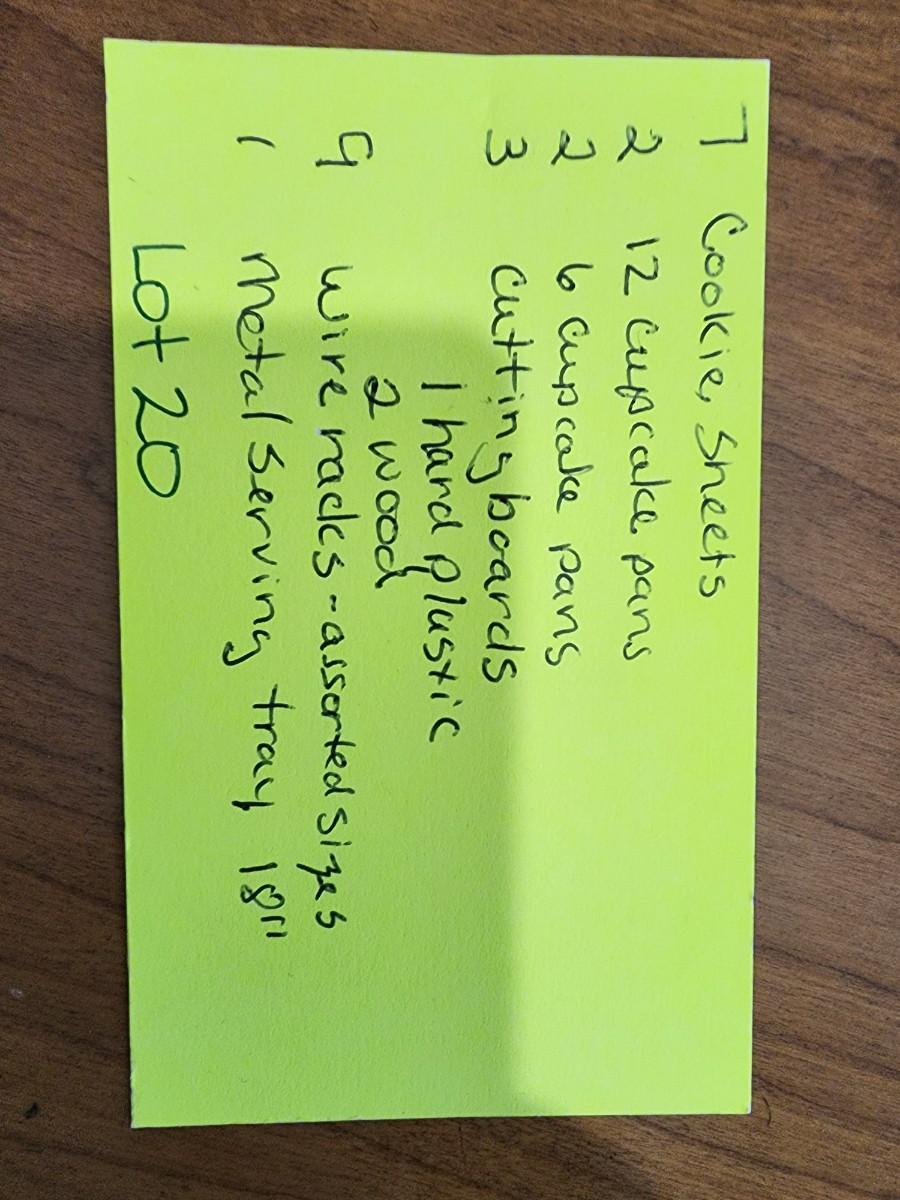 7 Cookie, Sheets
2 12 cupcake pans
2 6 cupcake pans
3 cutting boards
1 hard plastic
2 wood
9 wire racks - assorted sizes
1 metal serving tray 18"
Lot 20